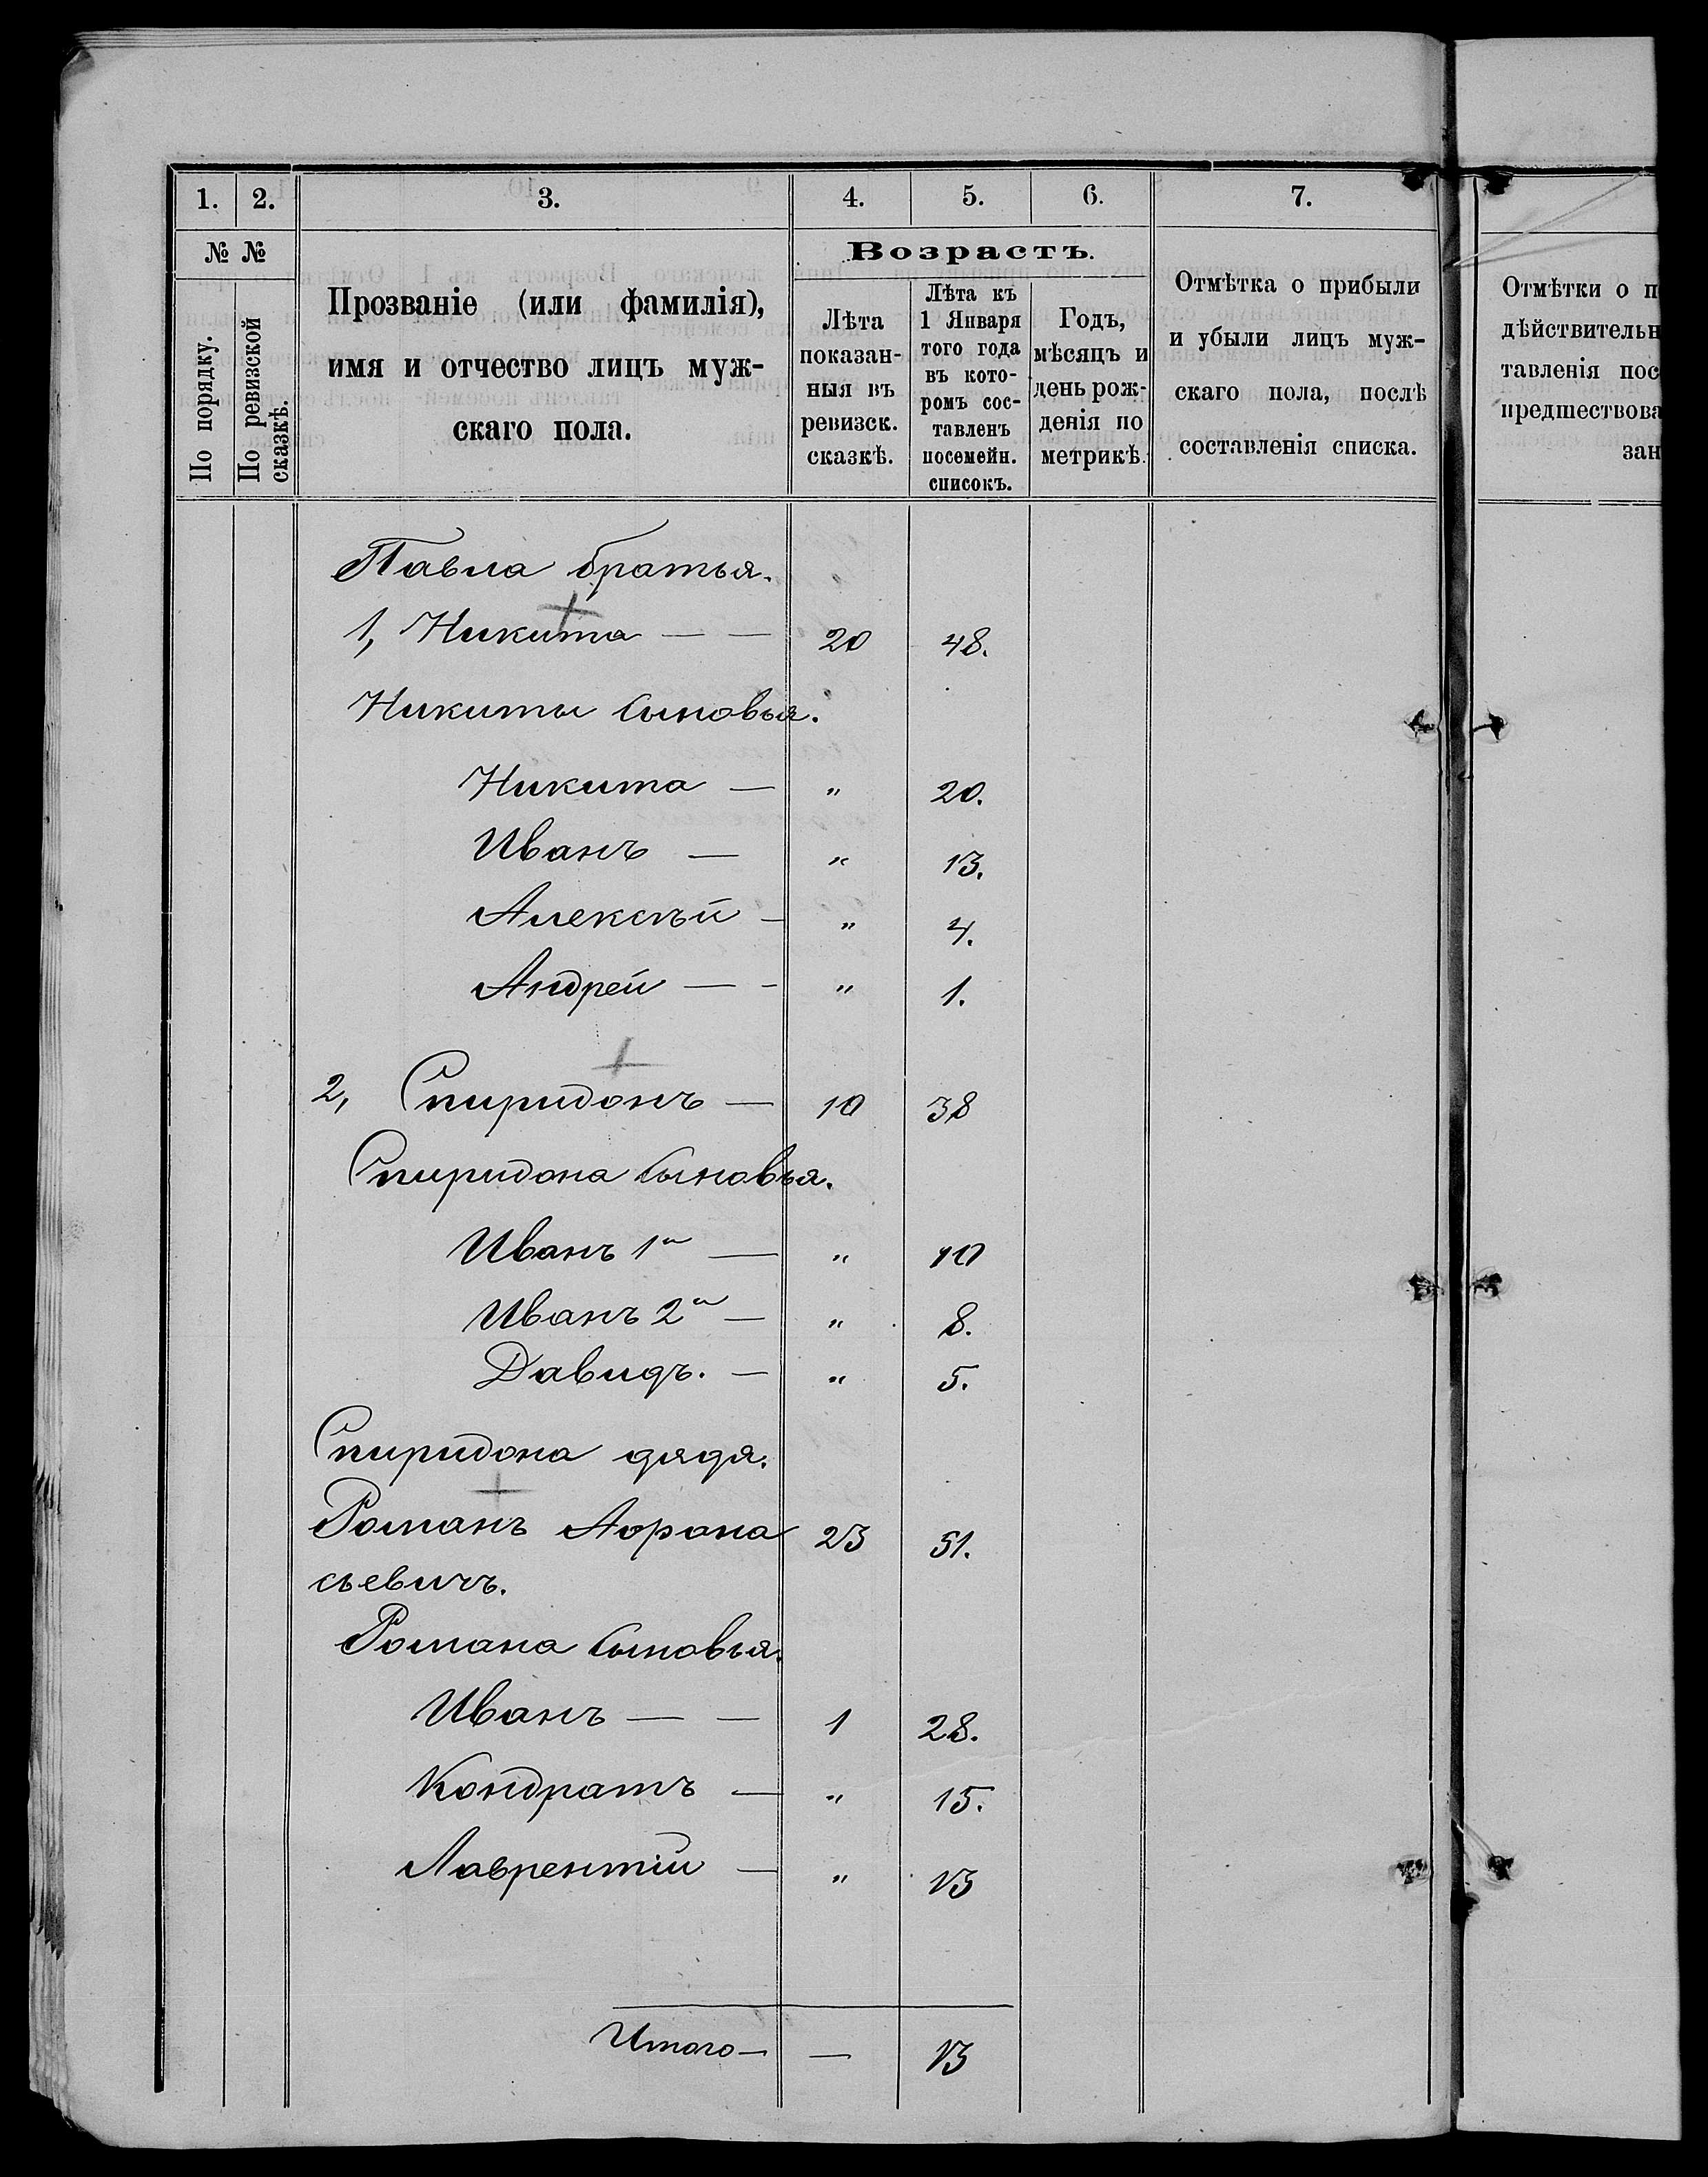 1. 2. 3. 4. 5. 6. 7.
№ №
По порядку.
По ревизской сказкѣ.
Прозваніе (или фамилія),
имя и отчество лицъ муж-
скаго пола.
Возрастъ.
Лѣта
показан-
ныя въ
ревизск.
сказкѣ.
Лѣта къ
1 Января
того года
въ кото-
ромъ сос-
тавленъ
посемейн.
списокъ.
Годъ,
мѣсяцъ и
день рож-
денія по
метрикѣ.
Отмѣтка о прибыли
и убыли лицъ муж-
скаго пола, послѣ
составленія списка.
Отмѣтки о п
дѣйствительн
тавленія пос
предшествова
зан
Павла братья.
1, Никита — — 20 48.
Никиты Сыновья.
Никита — " 20.
Иванъ — " 13.
Алексѣй - " 4.
Андрей — - " 1.
2, Спиридонъ — 10 38
Спиридона Сыновья.
Иванъ 1й — " 10
Иванъ 2й — " 8.
Давидъ. — " 5.
Спиридона дядя.
Романъ Аѳана 23 51.
сьевичъ.
Романа Сыновья.
Иванъ — — 1 28.
Кондратъ — " 15.
Лаврентій — " 13
Итого — — 13